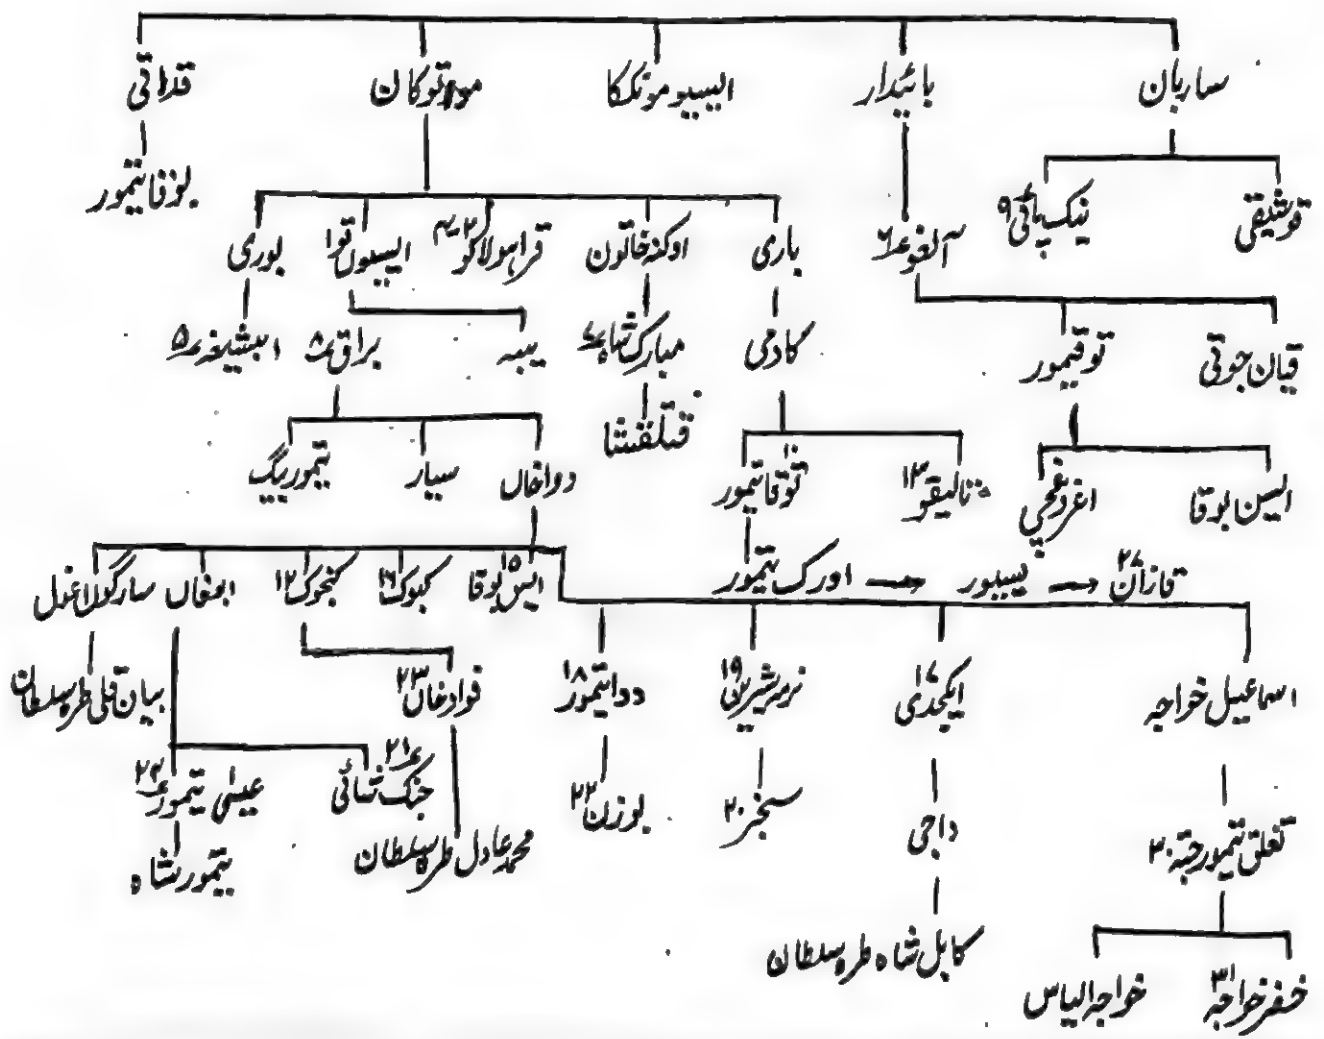 ساربان بائیدار ایسیوموتکا مواتوکان قداتی
قوشیقی نیک پائی ۹ آلغو ۶ بوقا تیمور
باری اوکنہ خاتون قراہولاکو ایسیون توا ۱ بوری
قیان جوتی توقیمور کادمی مبارک شاہ ۷ یبہ براق ۸ ابشیغہ ۵
قتلقشا
ایسن بوقا اغردغچی تالیقو ۱۳ توقا تیمور ۱۰ دواخاں سیار تیمور بیگ
قازان ۲۷ ← یسیور ← اورک تیمور ایسن بوقا ۱۵ کبوک ۱۶ کنجوک ۱۲ ابمغاں سارگول اغول
اسماعیل خواجہ ایکجدی ۱۷ ترمشیریں ۱۹ دوا تیمور ۱۸ فوادخاں ۲۳ بیان قلی طرہ سلطان
تغلق تیمور جتہ ۳۰ داجی سنجر ۲۰ بوزن ۲۲ جنک شائی ۲۱ عیسٰی تیمور ۲۴
محمد عادل طرہ سلطان تیمور شاہ
کابل شاہ طرہ سلطان
خضر خواجہ ۳۱ خواجہ الیاس